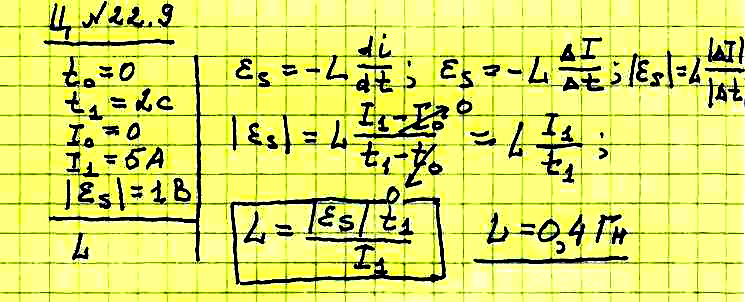 Ц №22.9
t₀ = 0
t₁ = 2c
I₀ = 0
I₁ = 5A
|Ɛs| = 1В
L
Ɛs = -L di/dt; Ɛs = -L ΔI/Δt; |Ɛs| = L |ΔI|/|Δt|
|Ɛs| = L (I₁ - I₀ → 0)/(t₁ - t₀ → 0) = L I₁/t₁;
L = |Ɛs| t₁/I₁
L = 0,4 Гн